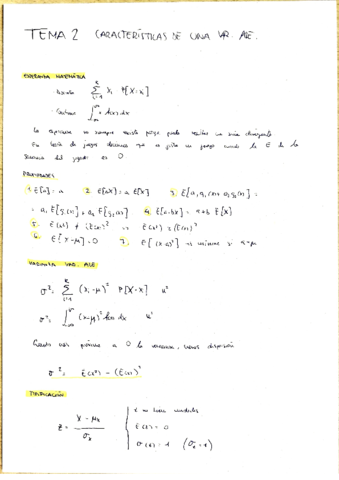 TEMA 2 CARACTERÍSTICAS DE UNA VAR. ALE.
ESPERANZA MATEMÁTICA
· Discreta Σ xᵢ P[X=xᵢ]
· Continua ∫ x f(x) dx
La esperanza no siempre existe porque puede resultar una serie divergente
En teoría de juegos decimos que es justo un juego cuando la E de la
ganancia del jugador es 0
PROPIEDADES
1. E[a] = a 2. E[aX] = a E[X] 3. E[a₁ g₁(x) + a₂ g₂(x)] =
= a₁ E[g₁(x)] + a₂ E[g₂(x)] 4. E[a+bX] = a+b E[X]
5. E(x²) ≠ (E(x))² => E(x²) ≥ (E(x))²
6. E[X-μ] = 0 7. E[(X-a)²] => mínimo si a=μ
VARIANZA VAR. ALE.
σ² = Σ (xᵢ-μ)² P[X=x] u²
σ² = ∫ (x-μ)² f(x) dx u²
Cuanto más próxima a 0 la varianza, menos dispersión
σ² = E(x²) - (E(x))²
TIPIFICACIÓN
Z = X - μₓ / σₓ
E(z) = 0
σ(z) = 1 (σ²z = 1)